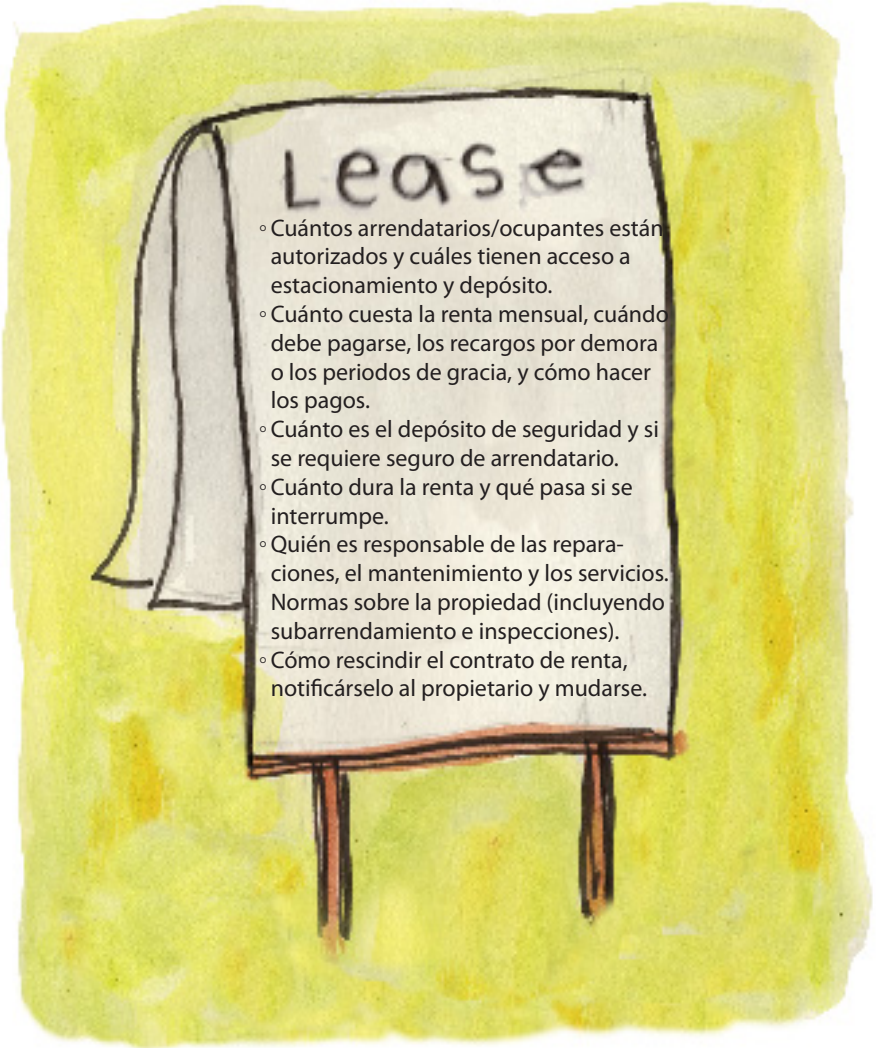 Lease
◦ Cuántos arrendatarios/ocupantes están
autorizados y cuáles tienen acceso a
estacionamiento y depósito.
◦ Cuánto cuesta la renta mensual, cuándo
debe pagarse, los recargos por demora
o los periodos de gracia, y cómo hacer
los pagos.
◦ Cuánto es el depósito de seguridad y si
se requiere seguro de arrendatario.
◦ Cuánto dura la renta y qué pasa si se
interrumpe.
◦ Quién es responsable de las repara-
ciones, el mantenimiento y los servicios.
Normas sobre la propiedad (incluyendo
subarrendamiento e inspecciones).
◦ Cómo rescindir el contrato de renta,
notificárselo al propietario y mudarse.